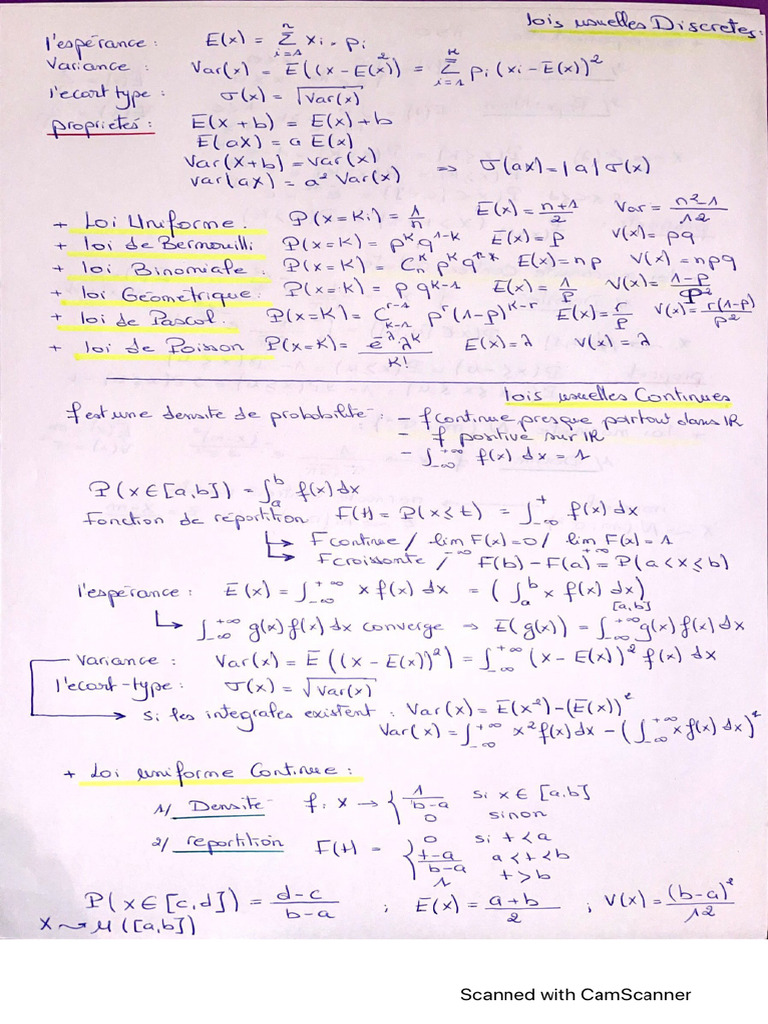 lois usuelles Discretes:
l'espérance : E(x) = Σ_{i=1}^{n} xi . pi
Variance : Var(x) = E((x - E(x))² = Σ_{i=1}^{K} pi (xi - E(x))²
l'ecart type : σ(x) = √Var(x)
proprietés : E(x + b) = E(x) + b
E(ax) = a E(x)
Var(x+b) = Var(x) ⇒ σ(ax) = |a| σ(x)
Var(ax) = a² Var(x)
+ Loi Uniforme. P(x=Ki) = 1/n E(x) = (n+1)/2 Var = (n²-1)/12
+ loi de Bernouilli P(x=K) = p^K q^{1-K} E(x) = p V(x) = pq
+ loi Binomiale : P(x=K) = C_n^K p^K q^{n-K} E(x) = np V(x) = npq
+ loi Géometrique : P(x=K) = p q^{K-1} E(x) = 1/p V(x) = (1-p)/p²
+ loi de Pascal. P(x=K) = C_{K-1}^{r-1} p^r (1-p)^{K-r} E(x) = r/p V(x) = r(1-p)/p²
+ loi de Poisson P(x=K) = e^λ λ^K / K! E(x) = λ V(x) = λ
lois usuelles Continues
f est une densite de probabilité : - f continue presque partout dans IR
- f positive sur IR
- ∫_{-∞}^{+∞} f(x) dx = 1
P(x ∈ [a,b]) = ∫_a^b f(x) dx
Fonction de répartition F(t) = P(x ≤ t) = ∫_{-∞}^t f(x) dx
↳ F continue / lim_{-∞} F(x) = 0 / lim_{+∞} F(x) = 1
↳ F croissante / F(b) - F(a) = P(a < x ≤ b)
l'espérance : E(x) = ∫_{-∞}^{+∞} x f(x) dx = (∫_a^b x f(x) dx)
[a,b]
↳ ∫_{-∞}^{+∞} g(x) f(x) dx converge ⇒ E(g(x)) = ∫_{-∞}^{+∞} g(x) f(x) dx
Variance : Var(x) = E((x - E(x))²) = ∫_{-∞}^{+∞} (x - E(x))² f(x) dx
l'ecart-type : σ(x) = √Var(x)
→ si les integrales existent : Var(x) = E(x²) - (E(x))²
Var(x) = ∫_{-∞}^{+∞} x² f(x) dx - (∫_{-∞}^{+∞} x f(x) dx)²
+ Loi uniforme Continue :
1/ Densite f : x → { 1/(b-a) si x ∈ [a,b]
0 sinon
2/ repartition F(t) = { 0 si t < a
(t-a)/(b-a) a < t < b
1 t > b
P(x ∈ [c,d]) = (d-c)/(b-a) ; E(x) = (a+b)/2 ; V(x) = (b-a)²/12
X ~ U([a,b])
Scanned with CamScanner